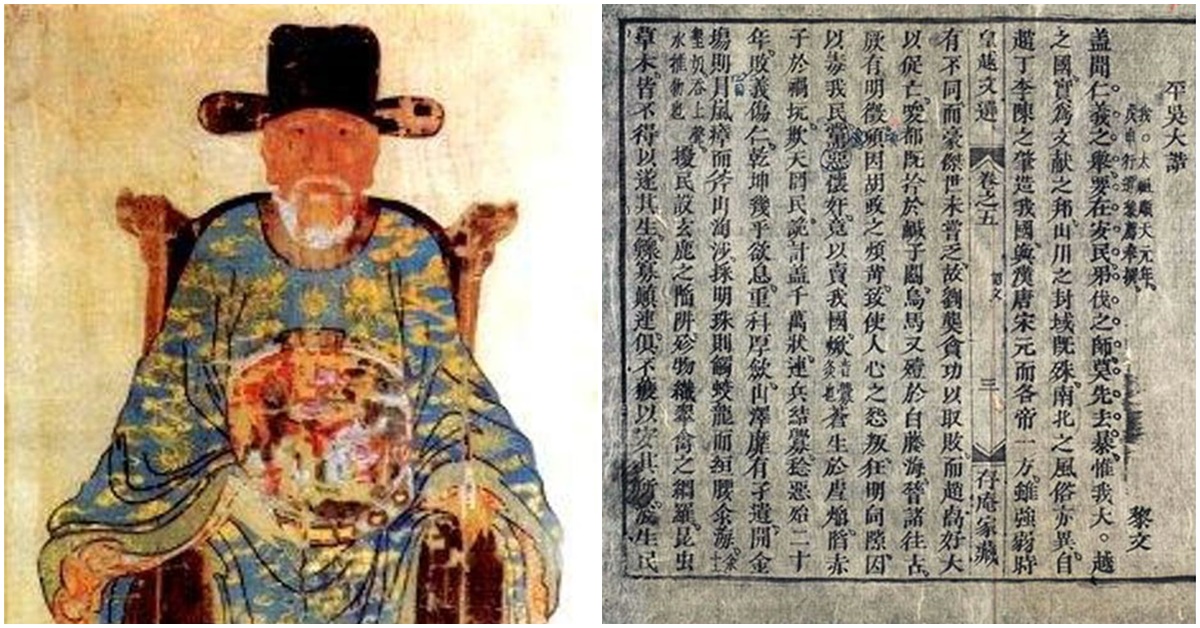 平吳大誥
我。太祖順天元年。
黎文
盖聞仁義之舉要在安民弔伐之師莫先去暴惟我大。越
之國實為文献之邦山川之封域既殊南北之風俗亦異自
趙丁李陳之肇造我國與漢唐宋元而各帝一方雖強弱時
皇越文選 卷之五 誥文 三 存庵家藏
有不同而豪傑世未嘗乏故劉龑貪功以取敗而趙禼好大
以促亡唆都既拎於鹹子關烏馬又殪於白藤海晉諸往古
厥有明徵頃因胡政之煩苛致使人心之怨叛狂明伺隙因
以毒我民黨惡懷奸竟以賣我國焮蒼生於虐焰䧟赤
子於禍坑欺天罔民詭計盖千萬狀連兵結釁稔惡殆二十
年敗義傷仁乾坤幾乎欲息重科厚斂山澤靡有孑遺開金
塲則冒嵐瘴而斧山淘沙採明珠則觸蛟龍而絙腰汆海
擾民設玄鹿之䧟阱殄物織翠禽之網羅昆虫
草木皆不得以遂其生鰥寡顛連俱不獲以安其所浚生民